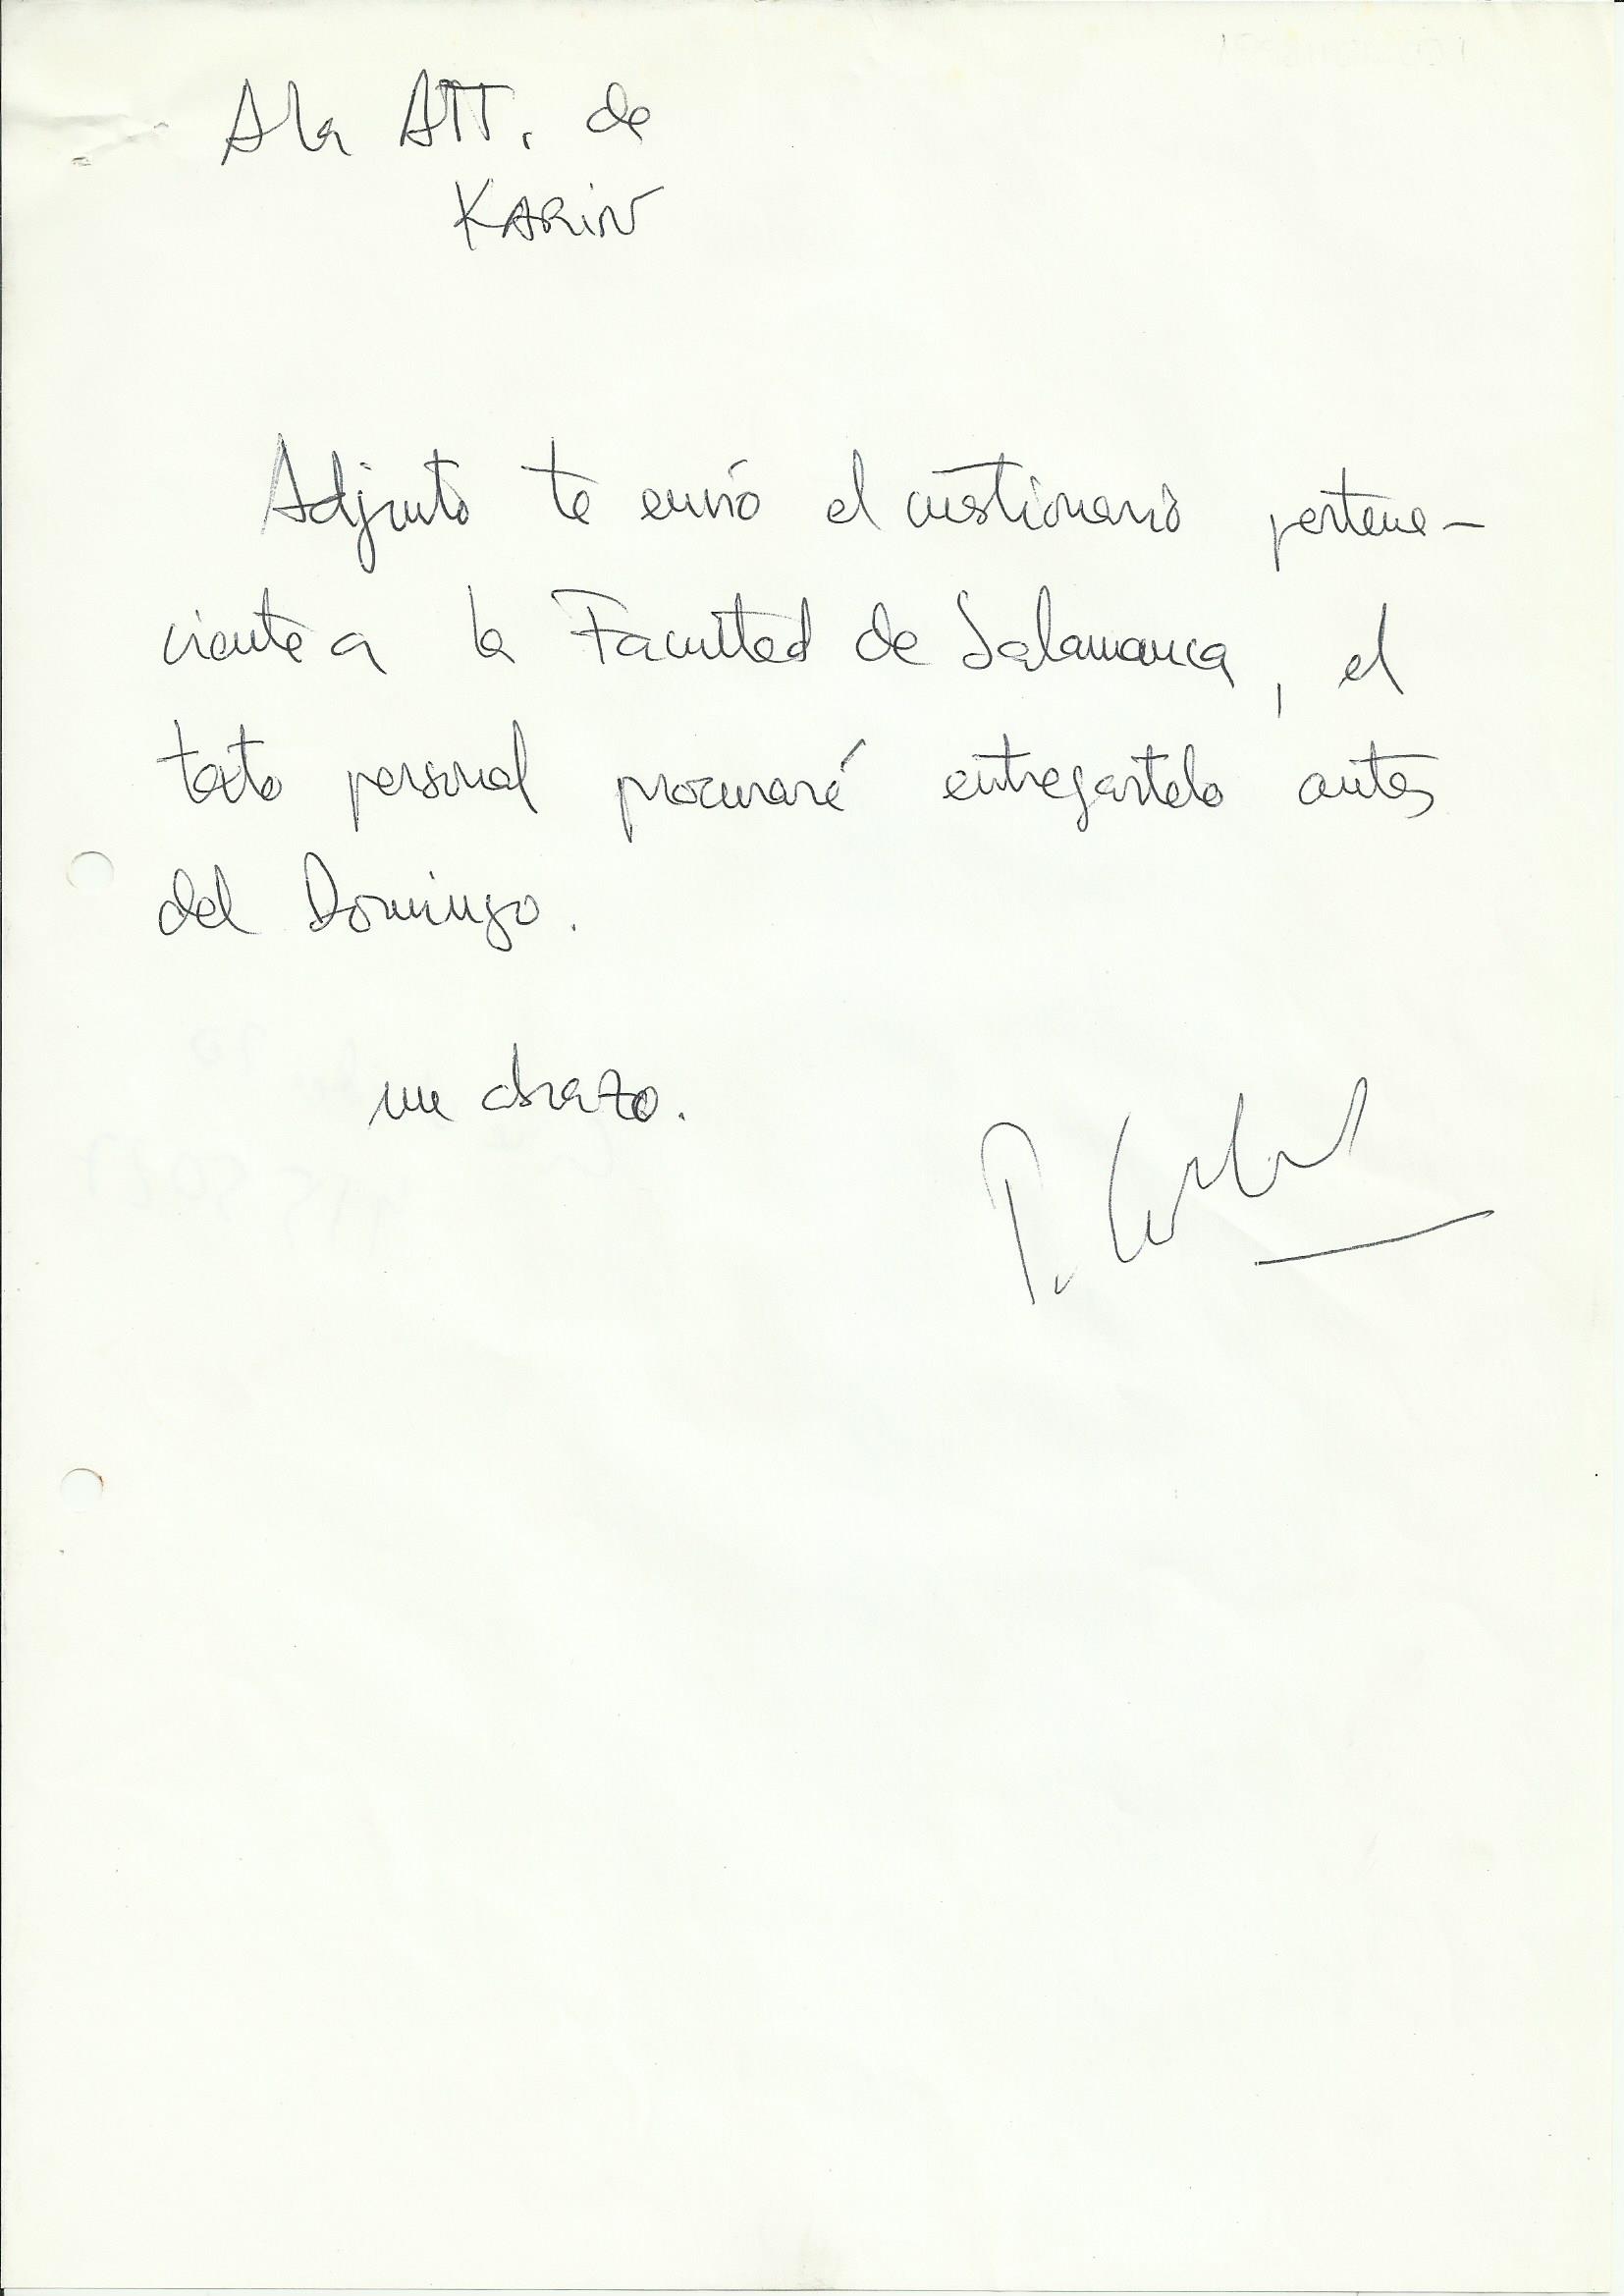 A la ATT. de
KARIN
Adjunto te envío el cuestionario pertene-
ciente a la Facultad de Salamanca, el
texto personal procuraré entregartelo antes
del Domingo.
un abrazo.
P.